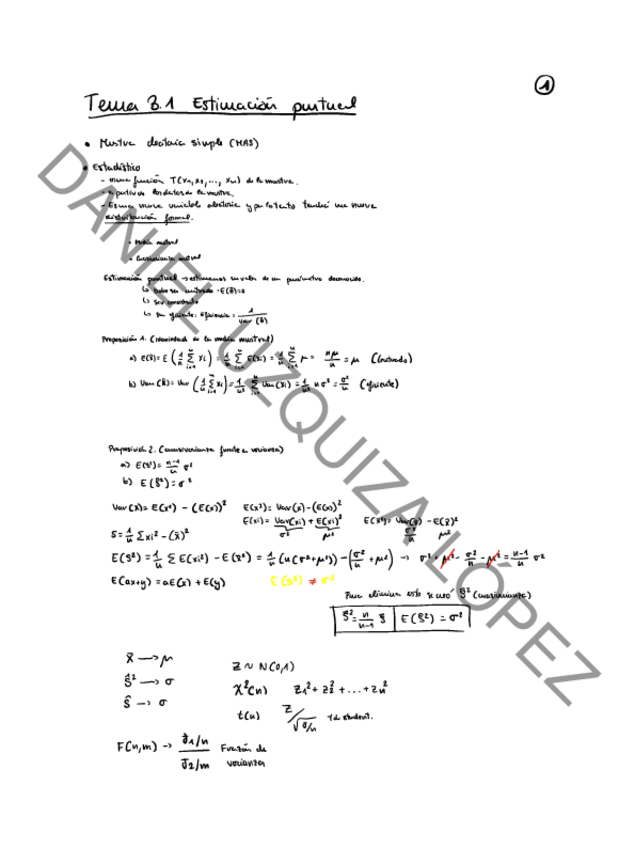 ①
Tema 3.1 Estimación puntual
• Muestra aleatoria simple (MAS)
• Estadístico
- una función T(x₁,x₂,..., xₙ) de la muestra.
- a partir de los datos de la muestra.
- Es una nueva variable aleatoria y por lo tanto tendrá una nueva
distribución formal.
• Media muestral
• Cuasivarianza muestral
Estimación puntual → estimamos un valor de un parámetro desconocido.
↳ Debe ser
↳ Ser consistente
↳ Ser eficiente: Eficiencia = 1/Var(θ̂)
Proposición 1: ( de la media muestral)
a) E(x̄) = E(1/n Σⁿᵢ₌₁ xi) = 1/n Σⁿᵢ₌₁ E(xi) = 1/n Σⁿᵢ₌₁ μ = nμ/n = μ (insesgado)
b) Var(x̄) = Var(1/n Σⁿᵢ₌₁ xi) = 1/n² Σⁿᵢ₌₁ Var(xi) = 1/n² n σ² = σ²/n (eficiente)
Proposición 2. (cuasivarianza frente a varianza)
a) E(S²) = n-1/n σ²
b) E(Ŝ²) = σ²
Var(x) = E(x²) − (E(x))² E(x²) = Var(x) − (E(x))²
E(xi) = Var(xi) + E(xi)² E(x̄²) = Var(x̄) − E(x̄)²
σ² μ² σ²/n μ²
S = 1/n Σ xi² − (x̄)²
E(S²) = 1/n Σ E(xi²) − E(x̄²) = 1/n (n(σ²+μ²)) − (σ²/n + μ²) → σ² + μ² − σ²/n − μ² = n-1/n σ²
E(ax+y) = aE(x) + E(y) E(S²) ≠ σ²
Para eliminar esto se usó Ŝ² (cuasivarianza)
Ŝ² = n/n-1 S | E(Ŝ²) = σ²
x̄ → μ
Ŝ² → σ
Ŝ → σ
Z ~ N(0,1)
χ²(n) Z₁² + Z₂² + ... + Zₙ²
t(n) Z/√σ/n t de student.
F(n,m) → J₁/n / J₂/m Fracción de
varianza
DANIEL UZQUIZA LÓPEZ